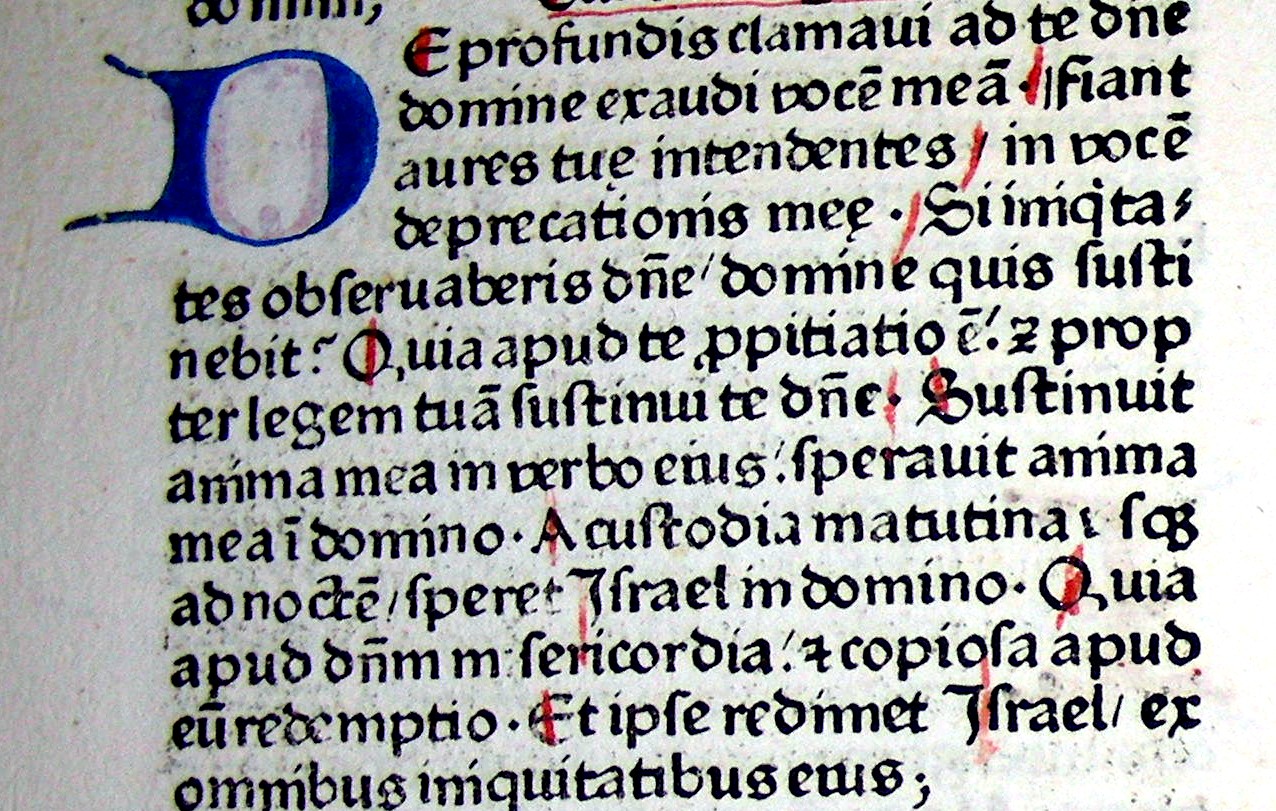 domini;
DE profundis clamaui ad te dñe
domine exaudi vocē meā · fiant
aures tuę intendentes / in vocē
deprecationis meę · Si iniq̇ta⸗
tes obſeruaberis dñe / domine quis ſuſti
nebit? Quia apud te ꝓpitiatio ē! ⁊ prop
ter legem tuā ſuſtinui te dñe · Suſtinuit
anima mea in verbo eius! ſperauit anima
mea ī domino · A cuſtodia matutina ſqꝫ
ad noctē / ſperet Iſrael in domino · Quia
apud dñm miſericordia! ⁊ copioſa apud
eū redemptio · Et ipſe redimet Iſrael / ex
omnibus iniquitatibus eius;